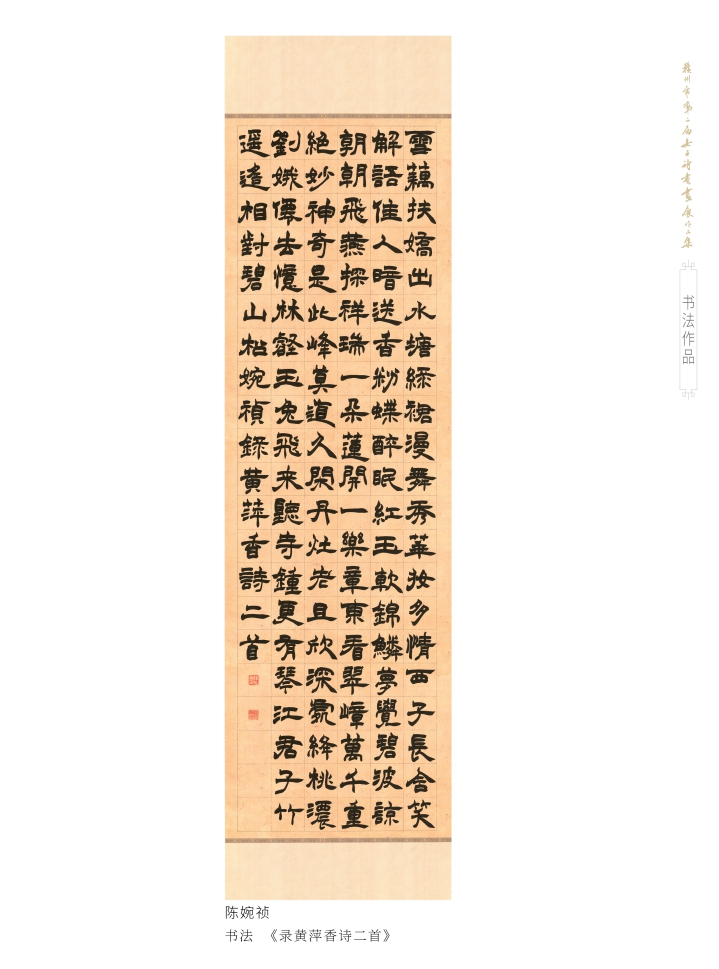 雪藕扶嬌出水塘綠裙漫舞秀華妝多情西子長含笑
解語佳人暗送香粉蝶醉眠紅玉軟錦鱗夢覺碧波涼
朝朝飛燕探祥瑞一朵蓮開一樂章東看翠嶂萬千重
絕妙神奇是此峰莫道久閑丹灶老且欣深處絳桃濃
劉娥僊去憶林壑玉兔飛来聽寺鐘更有琴江君子竹
遥遥相對碧山松婉禎錄黄萍香詩二首
赣州市第二届女子诗书画展作品集
书法作品
陈婉祯
书法 《录黄萍香诗二首》